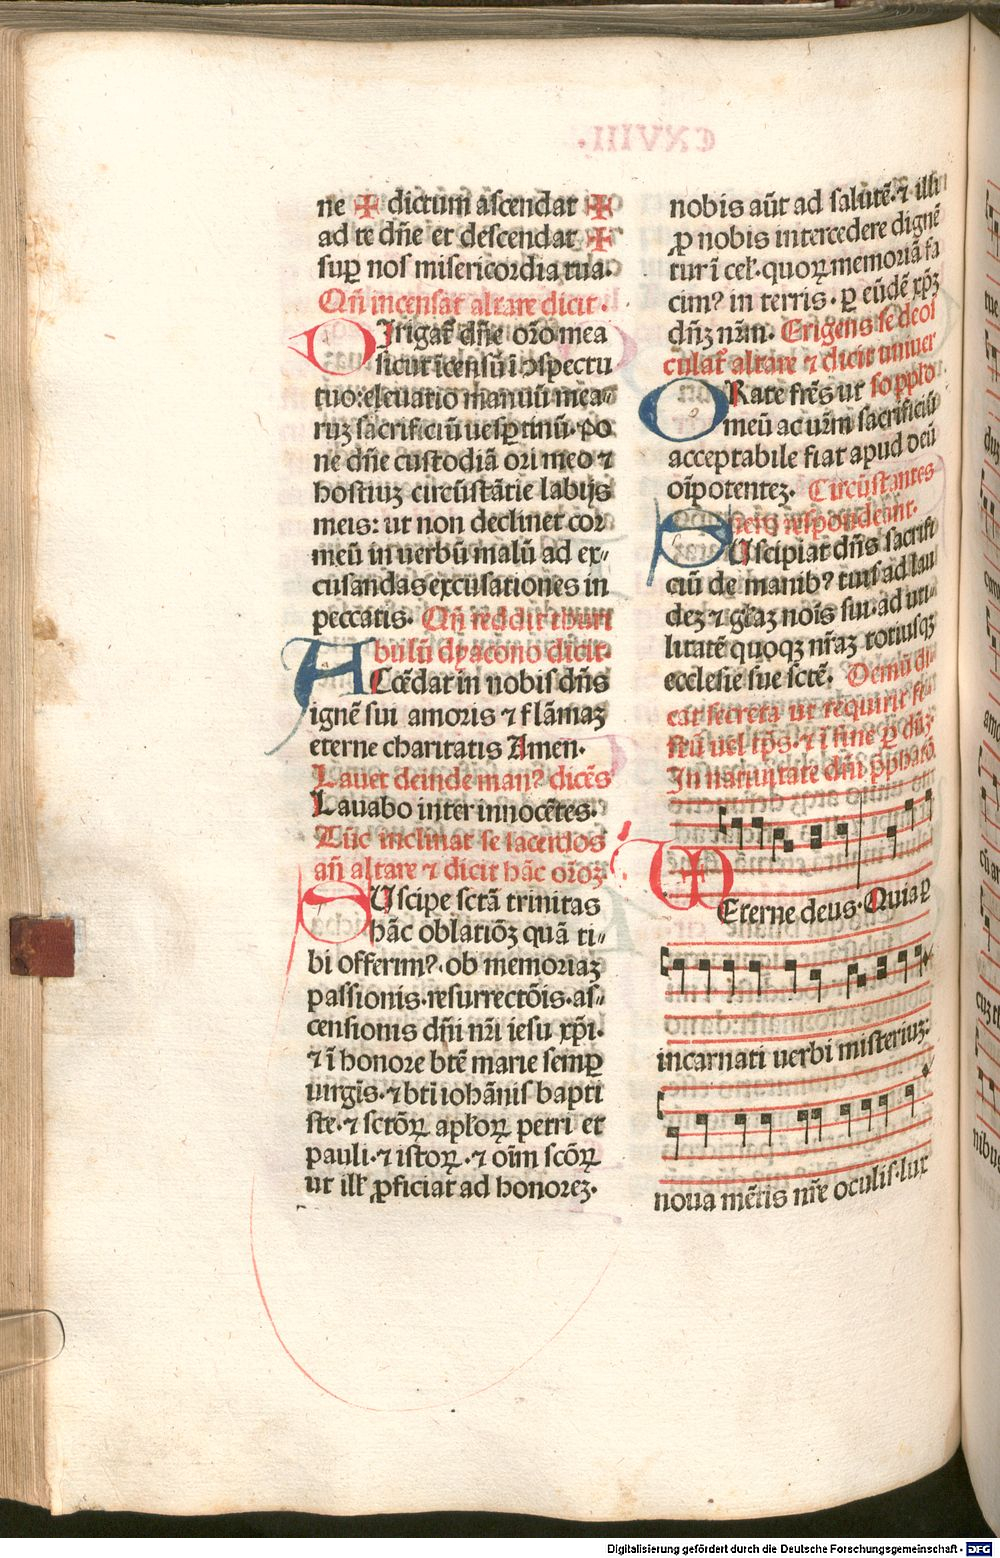 ne ✠ dictum ascendat ✠
ad te dñe et descendat ✠
suꝑ nos misericordia tua.
Qñ incensat altare dicit.
DIrigat᷑ dñe or̄o mea
sicut īcensū ī ꝯspectu
tuo: eleuatio manuū mea-
ruꝫ sacrificiū uesꝑtinū. po
ne dñe custodiā ori meo ⁊
hostiuꝫ circūstātie labijs
meis: ut non declinet cor
meū in uerbū malū ad ex-
cusandas excusationes in
peccatis. Qñ reddit thuri
bulū dyacono dicit.
ACcēdat in nobis dñs
ignē sui amoris ⁊ flāmaꝫ
eterne charitatis Amen.
Lauet deinde manꝰ dicēs
Lauabo inter innocētes.
Tūc inclinat se sacerdos
añ altare ⁊ dicit hāc or̄oꝫ
SUscipe sctā trinitas
hāc oblatiōꝫ quā ti-
bi offerimꝰ. ob memoriaꝫ
passionis. resurrectōis. as-
censionis dñi nr̄i iesu xp̄i.
⁊ ī honore btē marie semꝑ
uirgīs. ⁊ bti iohānis bapti
ste. ⁊ sctōꝝ apłoꝝ petri et
pauli. ⁊ istoꝝ. ⁊ oīm scōꝝ
ut ill' ꝓficiat ad honoreꝫ.
nobis aūt ad salutē. ⁊ illi
ꝓ nobis intercedere dignē
tur ī cel'. quoꝝ memoriā fa
cimꝰ in terris. ꝑ eūdē xp̄ꝫ
dñꝫ nr̄m. Erigens se deos
culat᷑ altare ⁊ dicit uniuer
ORate fr̄es ut so pplo
meū ac ur̄m sacrificiū
acceptabile fiat apud deū
oīpotenteꝫ. Circūstantes
uero respondeant.
SUscipiat dñs sacrifi
ciū de manibꝰ tuis ad lau
deꝫ ⁊ glaꝫ noīs sui. ad uti-
litatē quoqꝫ nr̄aꝫ totiusqꝫ
ecclesie sue sctē. Demū di-
cat secreta ut requirit fe-
stū uel tp̄s. ⁊ ī fine ꝑ dñꝫ.
In natiuitate dñi p̄phatō.
Eterne deus. Quia ꝑ
incarnati uerbi misteriuꝫ:
noua mētis nr̄e oculis. lux